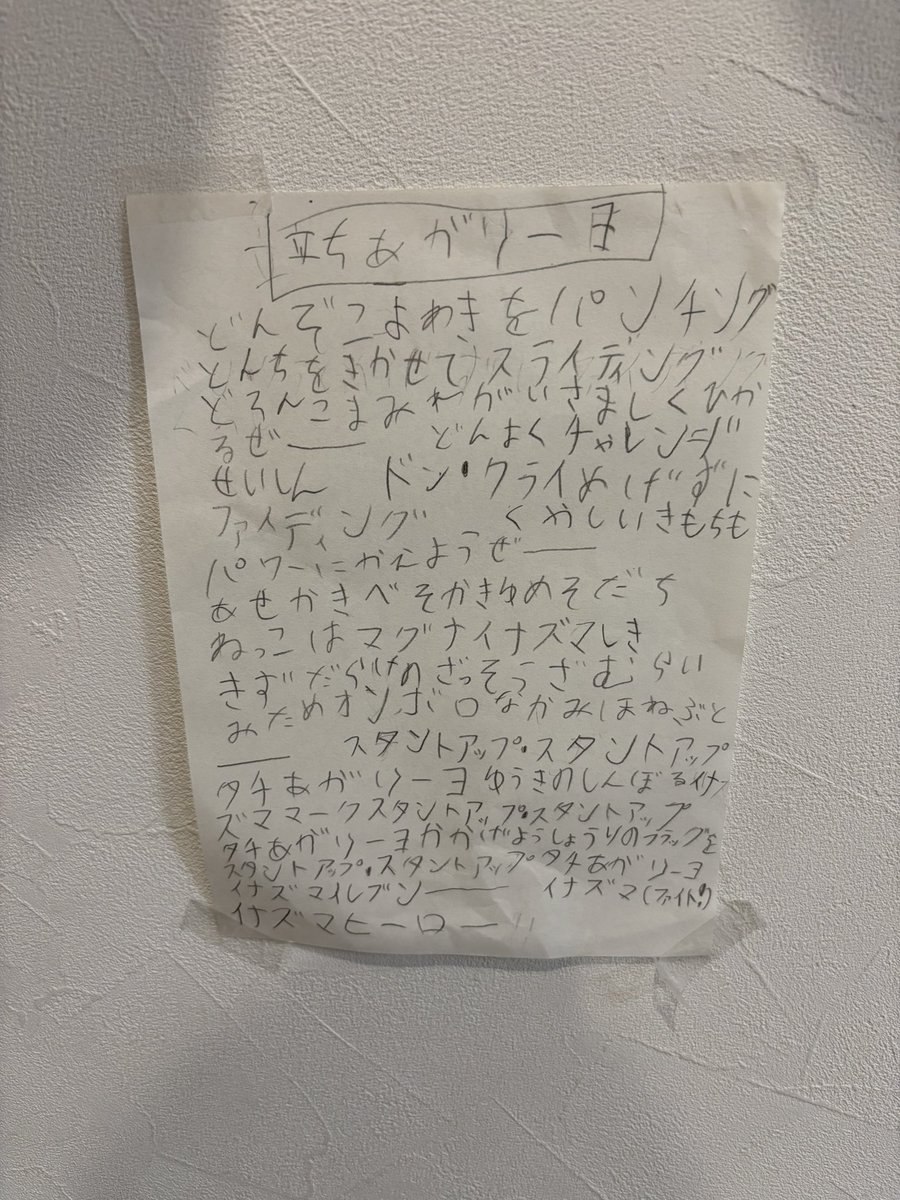 立ちあがりーヨ
どんぞこよわきをパンチング
とんちをきかせてスライディング
どろんこまみれがいさましくひか
るぜ―― どんよくチャレンジ
せいしん ドン・クライめげずに
ファイディング くやしいきもちも
パワーにかえようぜ――
あせかきべそかきゆめそだち
ねっこはマグナイナズマしき
きずだらけのざっそうざむらい
みためオンボロなかみほねぶと
―― スタントアップ・スタントアップ
タチあがリーヨゆうきのしんぼるイナ
ズママークスタントアップ・スタントアップ
タチあがリーヨかかげようしょうりのフラッグを
スタントアップ・スタントアップタチあがリーヨ
イナズマイレブン―― イナズマ(ファイト!)
イナズマヒーロー!!